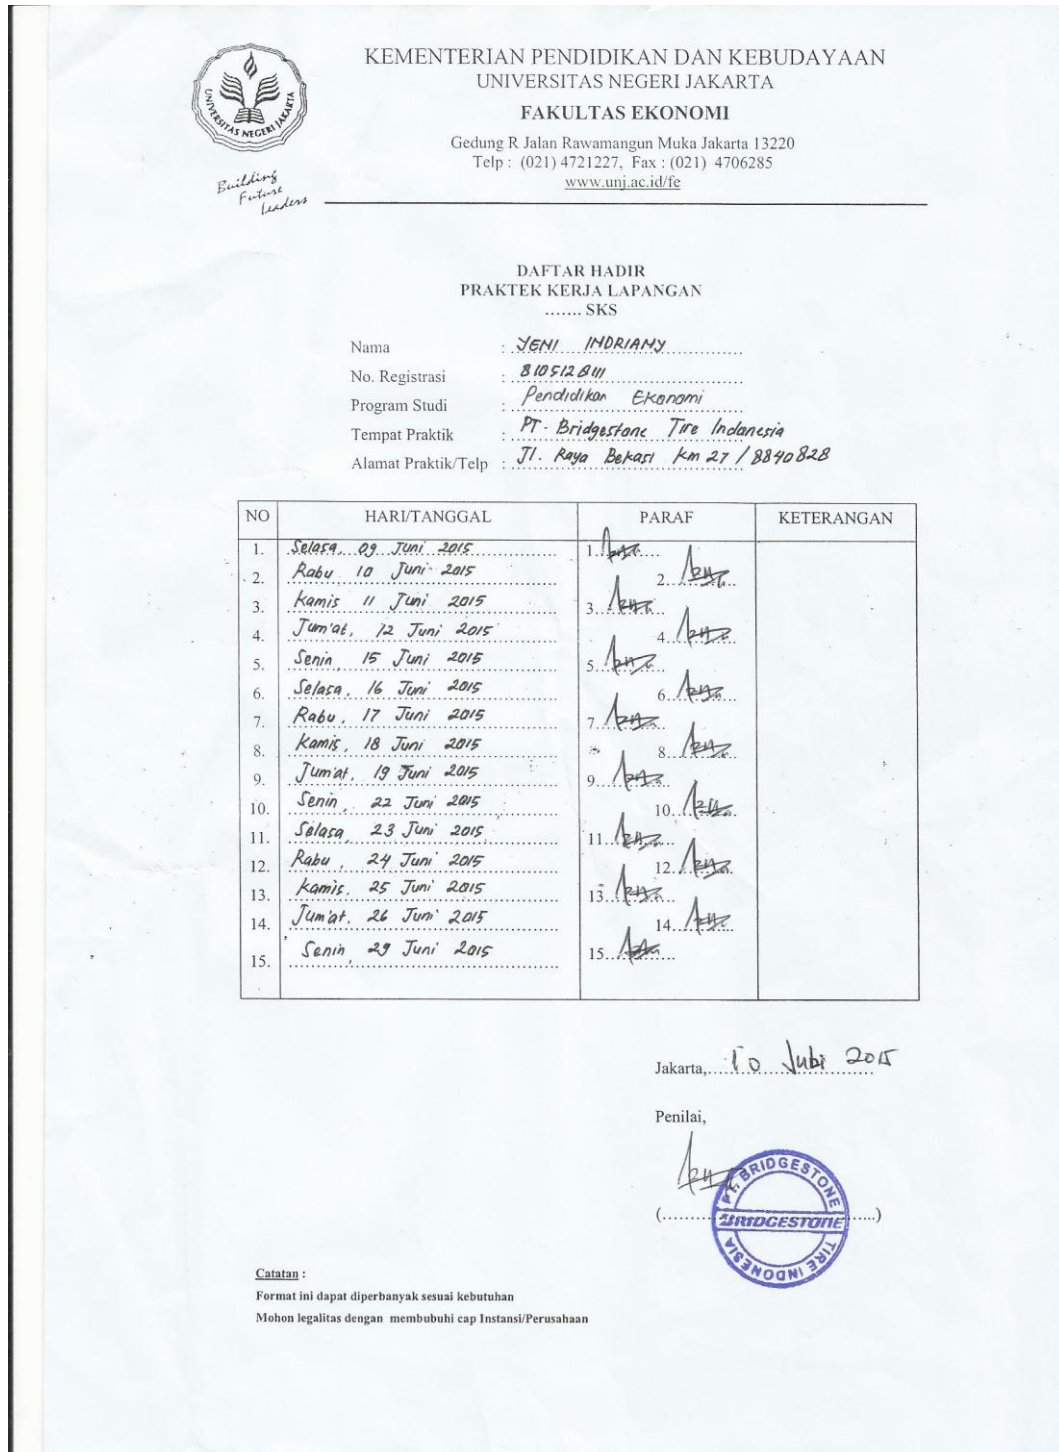 KEMENTERIAN PENDIDIKAN DAN KEBUDAYAAN
UNIVERSITAS NEGERI JAKARTA
FAKULTAS EKONOMI
Gedung R Jalan Rawamangun Muka Jakarta 13220
Telp : (021) 4721227, Fax : (021) 4706285
www.unj.ac.id/fe
UNIVERSITAS NEGERI JAKARTA
Building
Future
Leaders
DAFTAR HADIR
PRAKTEK KERJA LAPANGAN
....... SKS
Nama : YENI INDRIANY
No. Registrasi : 8105128111
Program Studi : Pendidikan Ekonomi
Tempat Praktik : PT. Bridgestone Tire Indonesia
Alamat Praktik/Telp : Jl. Raya Bekasi Km 27 / 8840828
NO HARI/TANGGAL PARAF KETERANGAN
1. Selasa, 09 Juni 2015 1.
2. Rabu 10 Juni 2015 2.
3. Kamis 11 Juni 2015 3.
4. Jum'at, 12 Juni 2015 4.
5. Senin, 15 Juni 2015 5.
6. Selasa, 16 Juni 2015 6.
7. Rabu, 17 Juni 2015 7.
8. Kamis, 18 Juni 2015 8.
9. Jum'at, 19 Juni 2015 9.
10. Senin, 22 Juni 2015 10.
11. Selasa, 23 Juni 2015 11.
12. Rabu, 24 Juni 2015 12.
13. Kamis, 25 Juni 2015 13.
14. Jum'at, 26 Juni 2015 14.
15. Senin, 29 Juni 2015 15.
Jakarta, 10 Juli 2015
Penilai,
(....................)
PT. BRIDGESTONE
BRIDGESTONE
TIRE INDONESIA
Catatan :
Format ini dapat diperbanyak sesuai kebutuhan
Mohon legalitas dengan membubuhi cap Instansi/Perusahaan